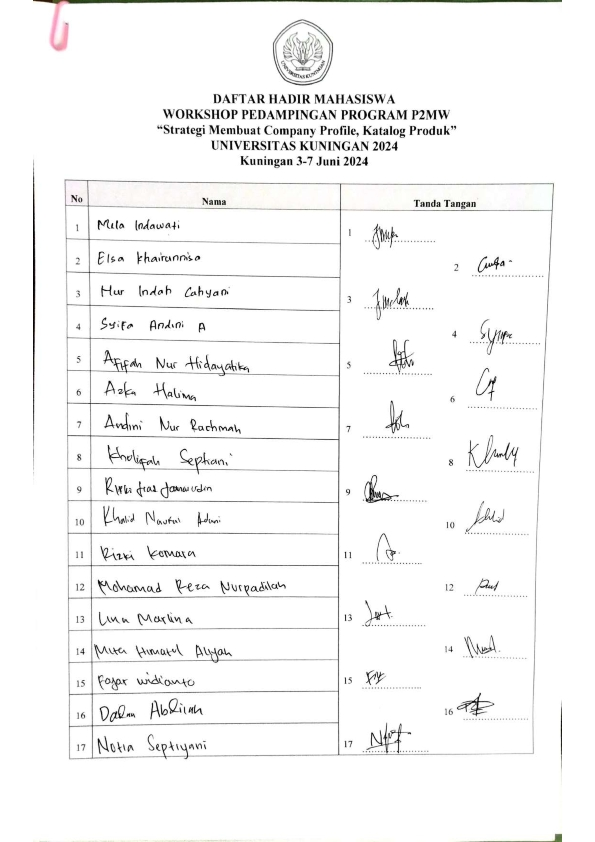 UNIVERSITAS KUNINGAN
DAFTAR HADIR MAHASISWA
WORKSHOP PEDAMPINGAN PROGRAM P2MW
“Strategi Membuat Company Profile, Katalog Produk”
UNIVERSITAS KUNINGAN 2024
Kuningan 3-7 Juni 2024
No Nama Tanda Tangan
1 Mela Indawati 1
2 Elsa Khairunnisa 2
3 Nur Indah Cahyani 3
4 Syifa Andini A 4
5 Afifah Nur Hidayatika 5
6 Azka Halima 6
7 Andini Nur Rachmah 7
8 Kholifah Septiani 8
9 9
10 Khalid Naufal 10
11 Rizki Komara 11
12 Mohamad Reza Nurpadilah 12
13 Lina Marlina 13
14 Mita Himatul Aliyah 14
15 Fajar Widianto 15
16 16
17 Novia Septiyani 17